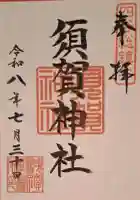 奉拝
須賀神社
令和八年七月三十日